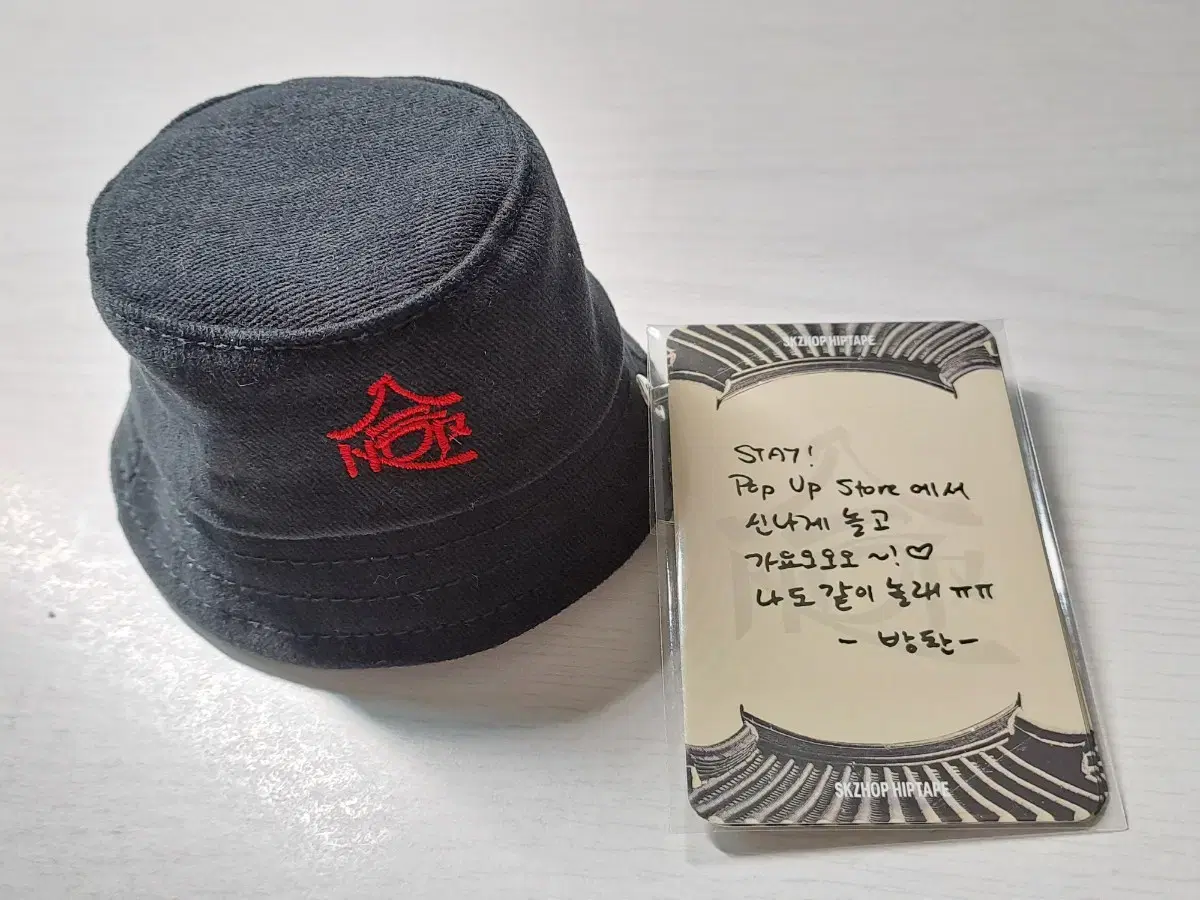 合HOP
SKZHOP HIPTAPE
STAY!
Pop Up Store 에서
신나게 놀고
가요오오오 ~! ♡
나도 같이 놀래 ㅠㅠ
- 방찬 -
SKZHOP HIPTAPE